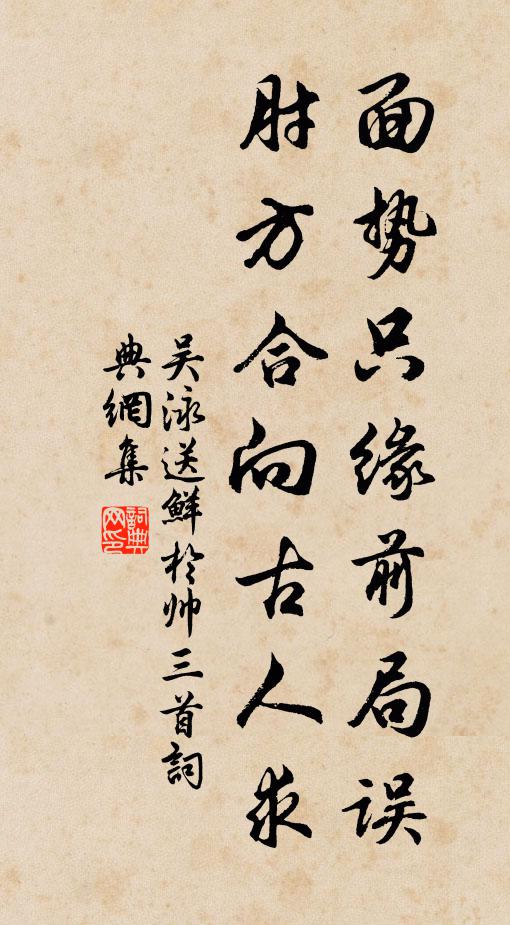 面势只缘前局误
肘方合向古人求
吴泳送鲜於帅三首詞
典網集
詞典
网印